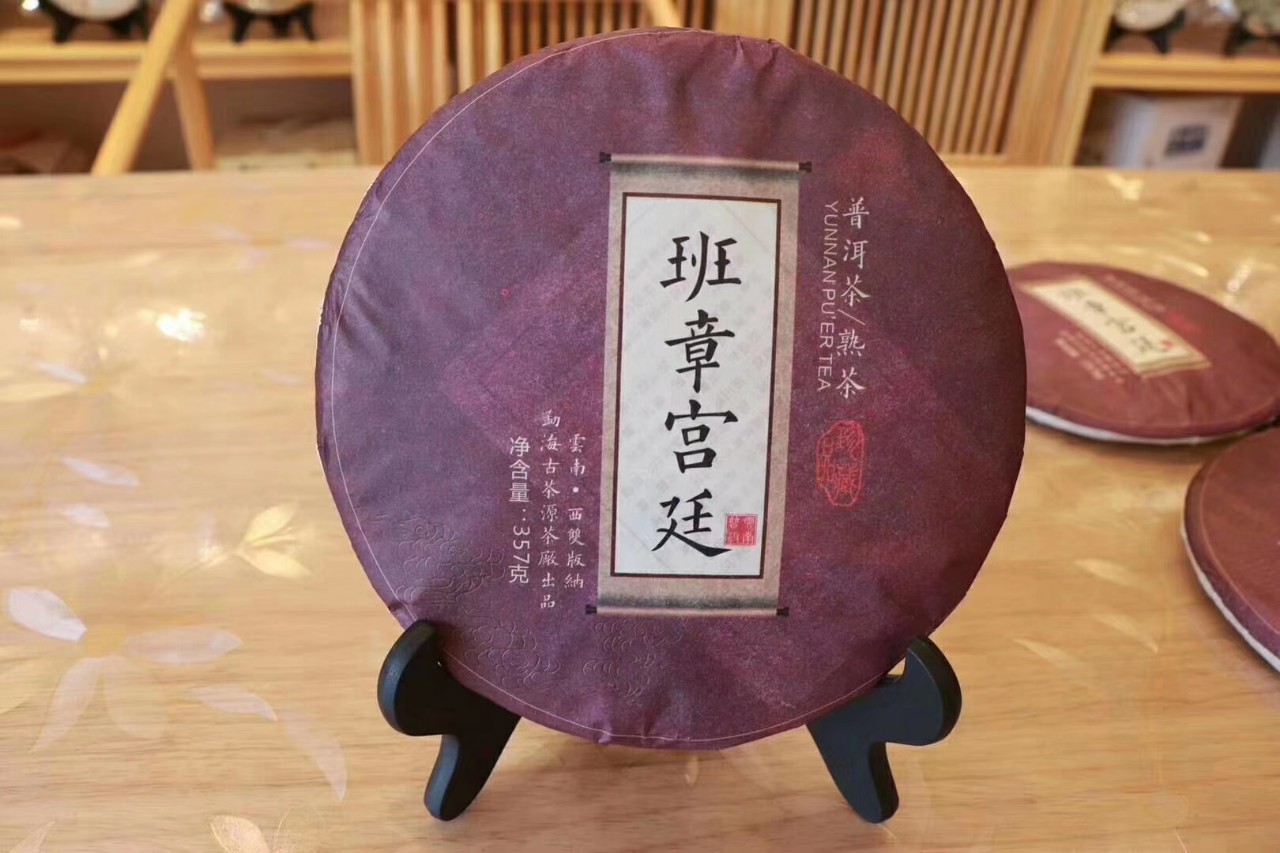 普洱茶/熟茶
YUNNAN PU'ER TEA
珍藏
班章宫廷
雲南•西雙版納
勐海古茶源茶廠出品
净含量:357克